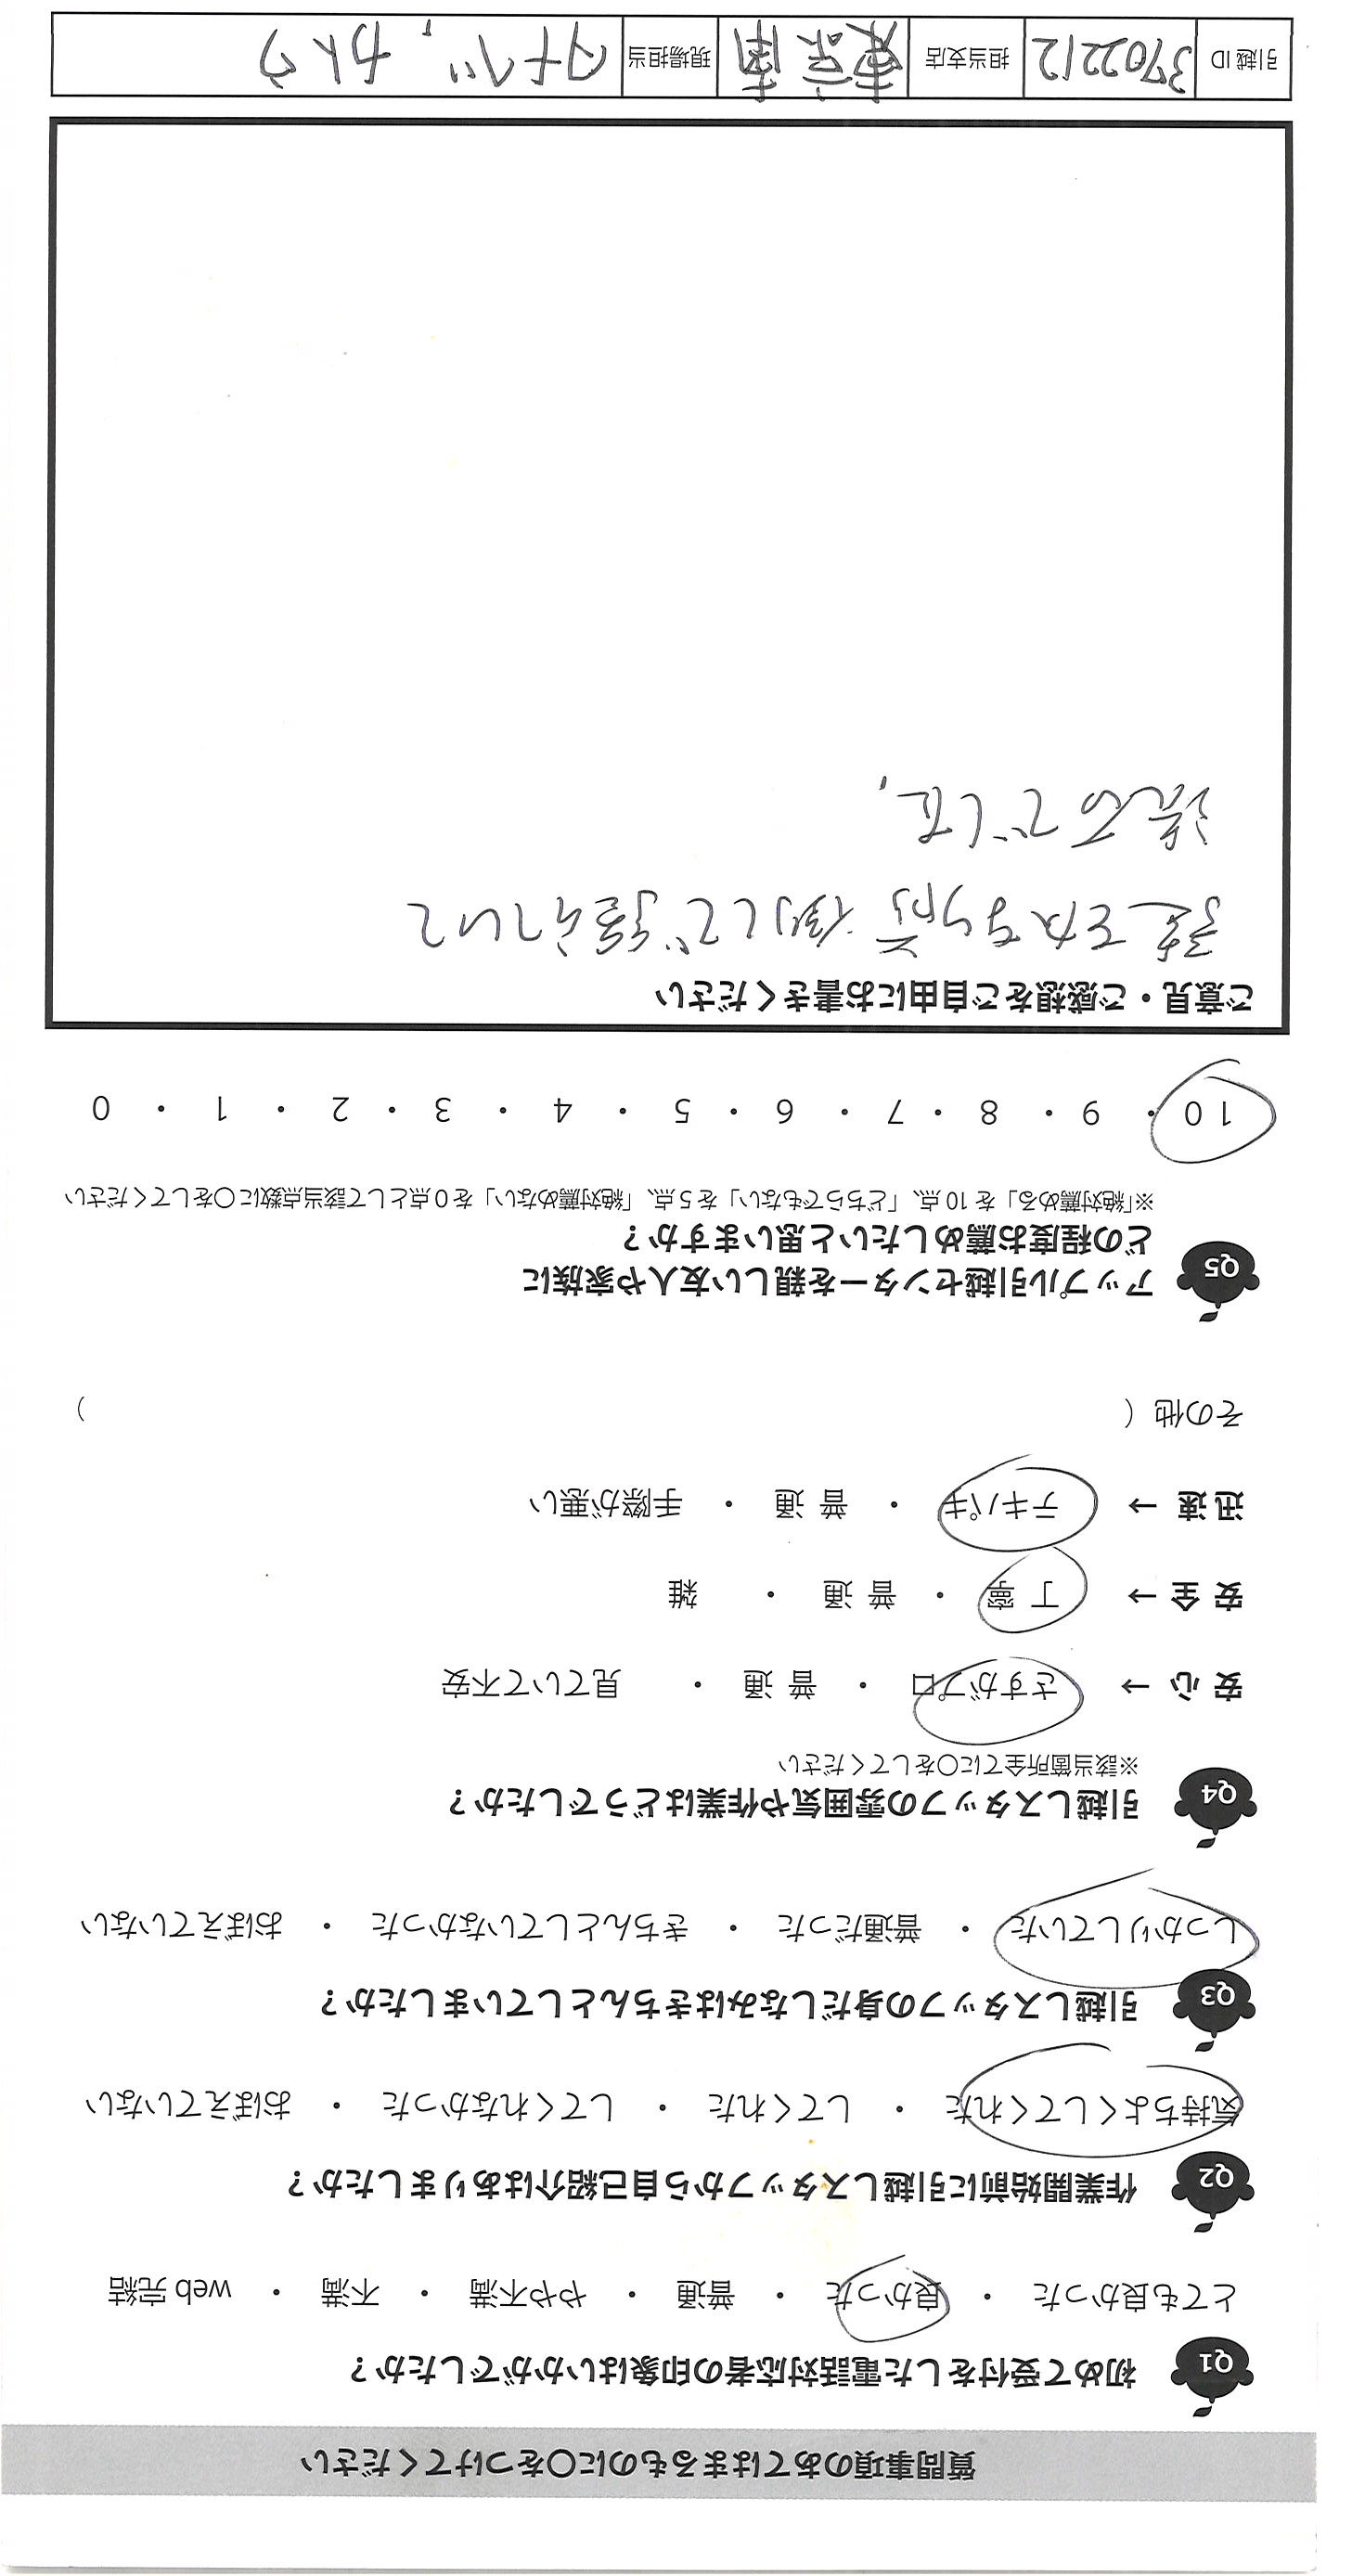 質問事項のあてはまるものに〇をつけてください
Q1 初めて受付をした電話対応者の印象はいかがでしたか？
とても良かった ・ 良かった ・ 普通 ・ やや不満 ・ 不満 ・ web 完結
Q2 作業開始前に引越しスタッフから自己紹介はありましたか？
気持ちよくしてくれた ・ してくれた ・ してくれなかった ・ おぼえていない
Q3 引越しスタッフの身だしなみはきちんとしていましたか？
しっかりしていた ・ 普通だった ・ きちんとしていなかった ・ おぼえていない
Q4 引越しスタッフの雰囲気や作業はどうでしたか？
※該当箇所全てに〇をしてください
安 心 → さすがプロ ・ 普 通 ・ 見ていて不安
安 全 → 丁 寧 ・ 普 通 ・ 雑
迅 速 → テキパキ ・ 普 通 ・ 手際が悪い
その他（ ）
Q5 アップル引越センターを親しい友人や家族に
どの程度お薦めしたいと思いますか？
※「絶対薦める」を 10 点、「どちらでもない」を 5 点、「絶対薦めない」を 0 点として該当点数に〇をしてください
10 ・ 9 ・ 8 ・ 7 ・ 6 ・ 5 ・ 4 ・ 3 ・ 2 ・ 1 ・ 0
ご意見・ご感想をご自由にお書きください
でした。
引越 ID 3702212 担当支店 東京南 現場担当 タナベ、カトウ